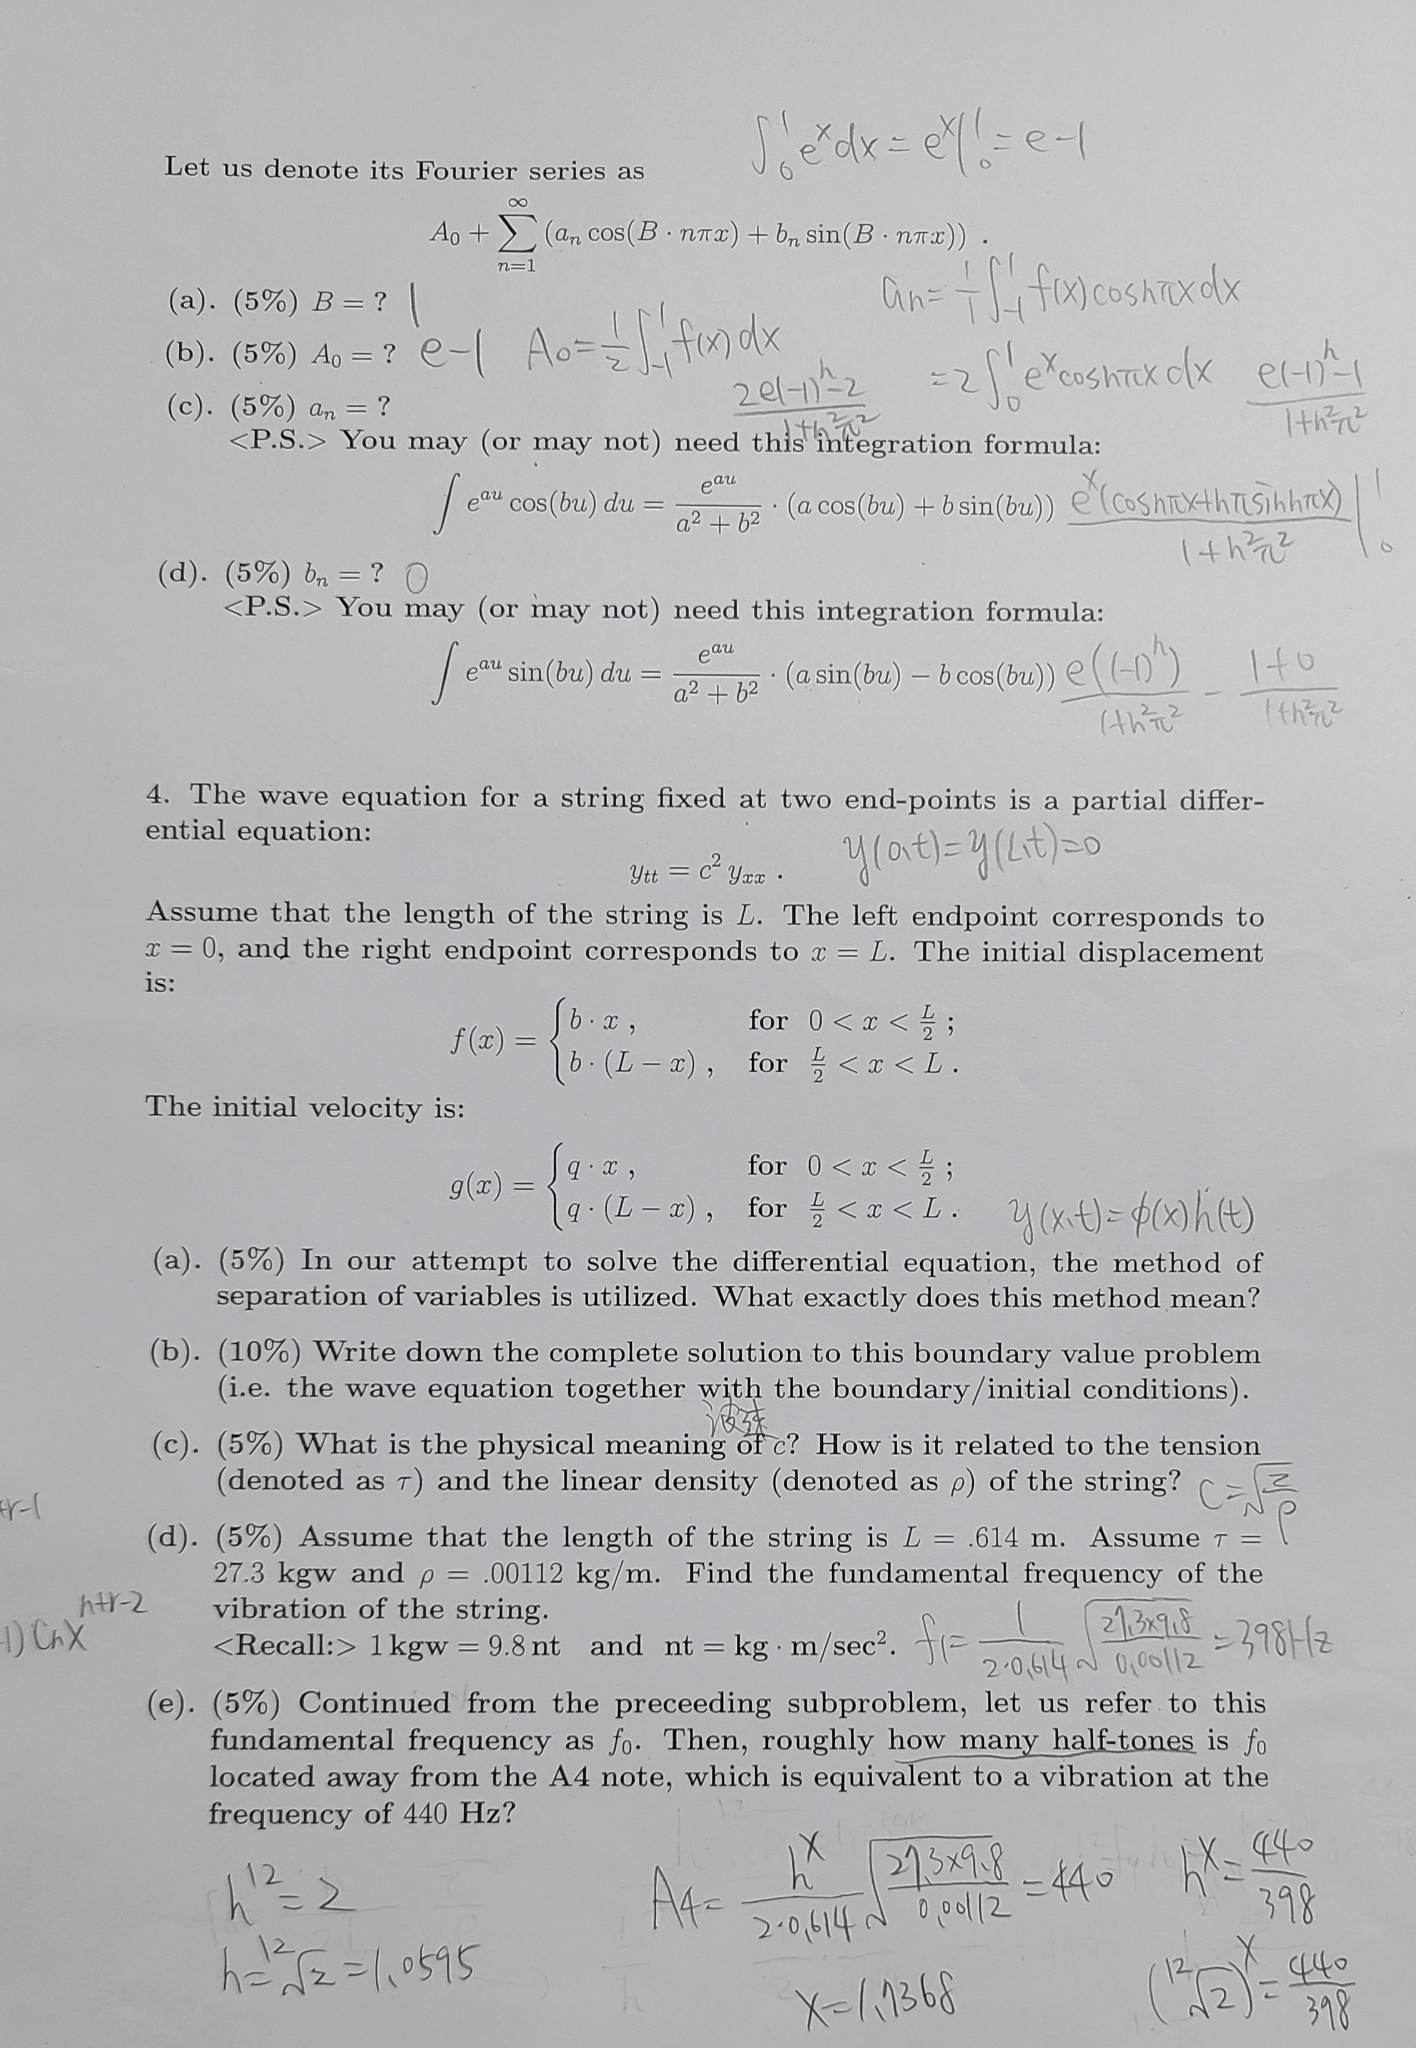 ∫₀¹ eˣdx = eˣ|₀¹ = e-1
Let us denote its Fourier series as
A₀ + ∑_{n=1}^{∞} (aₙ cos(B · nπx) + bₙ sin(B · nπx)) .
aₙ = 1/1 ∫₋₁¹ f(x) cosnπx dx
(a). (5%) B = ? 1
(b). (5%) A₀ = ? e-1 A₀ = 1/2 ∫₋₁¹ f(x) dx
= 2∫₀¹ eˣcosnπx dx (e(-1)ⁿ-1)/(1+n²π²)
(c). (5%) aₙ = ? (2e(-1)ⁿ-2)/(1+n²π²)
<P.S.> You may (or may not) need this integration formula:
∫ e^{au} cos(bu) du = e^{au}/(a² + b²) · (a cos(bu) + b sin(bu)) eˣ(cosnπx+nπsinnπx)/(1+n²π²) |₀¹
(d). (5%) bₙ = ? 0
<P.S.> You may (or may not) need this integration formula:
∫ e^{au} sin(bu) du = e^{au}/(a² + b²) · (a sin(bu) − b cos(bu)) e((-1)ⁿ)/(1+n²π²) - (1+0)/(1+n²π²)
4. The wave equation for a string fixed at two end-points is a partial differ-
ential equation:
y_{tt} = c² y_{xx} . y(0,t)=y(L,t)=0
Assume that the length of the string is L. The left endpoint corresponds to
x = 0, and the right endpoint corresponds to x = L. The initial displacement
is:
f(x) = { b · x , for 0 < x < L/2 ;
b · (L − x) , for L/2 < x < L .
The initial velocity is:
g(x) = { q · x , for 0 < x < L/2 ;
q · (L − x) , for L/2 < x < L . y(x,t)=ϕ(x)h(t)
(a). (5%) In our attempt to solve the differential equation, the method of
separation of variables is utilized. What exactly does this method mean?
(b). (10%) Write down the complete solution to this boundary value problem
(i.e. the wave equation together with the boundary/initial conditions).
波速
(c). (5%) What is the physical meaning of c? How is it related to the tension
(denoted as τ) and the linear density (denoted as ρ) of the string? C=√(τ/ρ)
+r-1
(d). (5%) Assume that the length of the string is L = .614 m. Assume τ =
27.3 kgw and ρ = .00112 kg/m. Find the fundamental frequency of the
vibration of the string.
-1) Cₙx^{n+r-2}
<Recall:> 1 kgw = 9.8 nt and nt = kg · m/sec². f₁ = 1/(2·0.614) √(27.3x9.8/0.00112) = 398Hz
(e). (5%) Continued from the preceeding subproblem, let us refer to this
fundamental frequency as f₀. Then, roughly how many half-tones is f₀
located away from the A4 note, which is equivalent to a vibration at the
frequency of 440 Hz?
h¹²=2 A4 = hˣ/(2·0.614) √(27.3x9.8/0.00112) = 440 hˣ = 440/398
h=¹²√2=1.0595 x=1.7368 (¹²√2)ˣ = 440/398